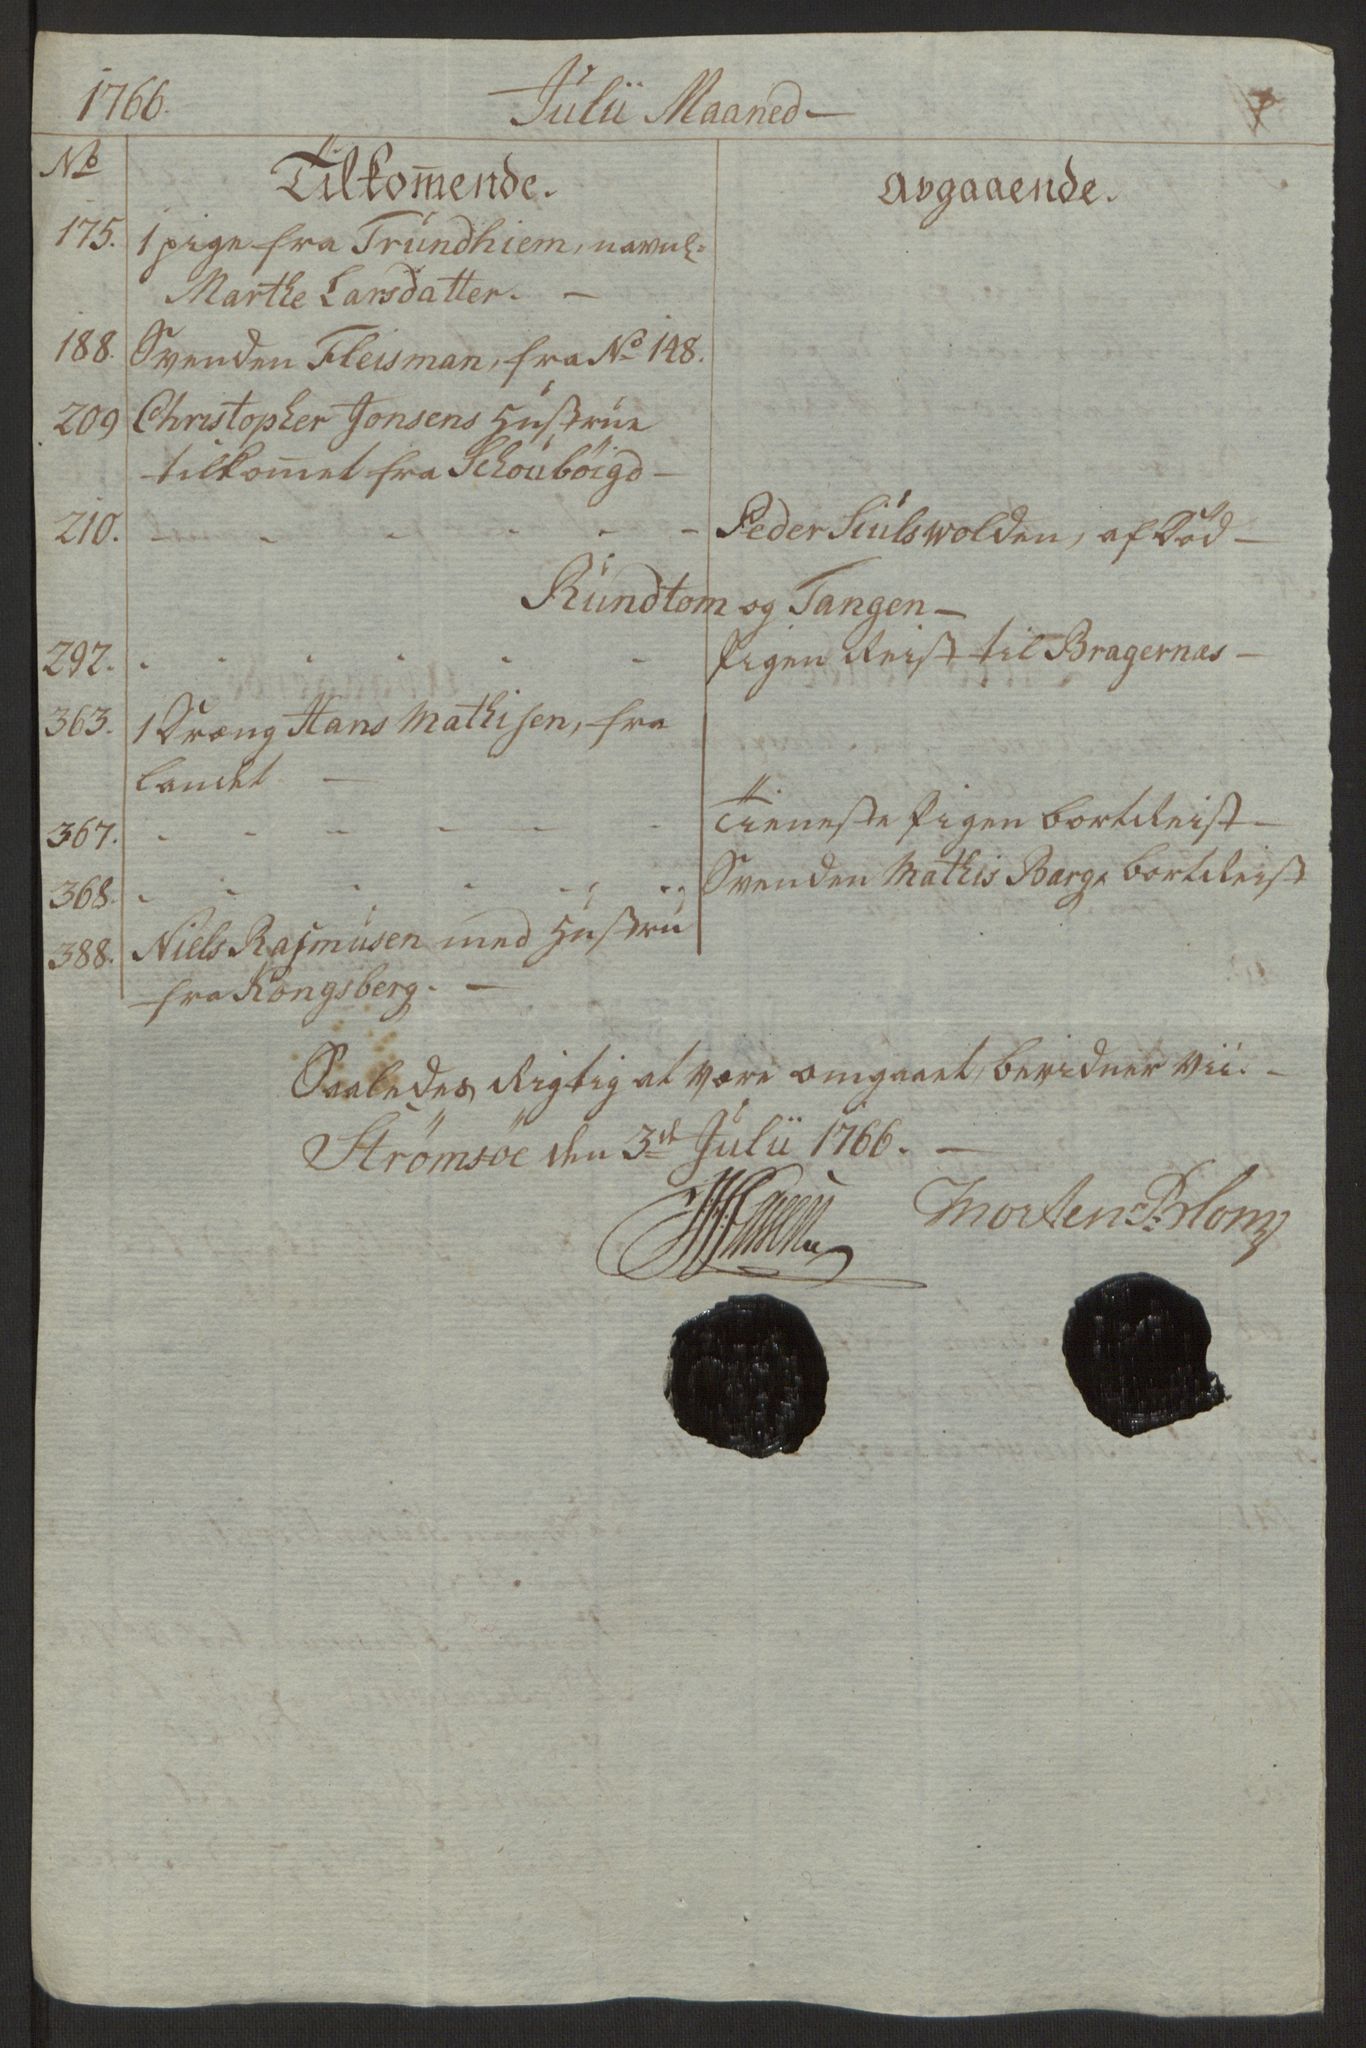 1766. Julii Maaned —
No
Tilkom̄ende. Avgaaende.
175. 1 pige fra Trundhiem, navnl:
Marthe Larsdatter. —
188. Svenden Fleisman, fra No 148.
209 Christopher Jonsens Hustrue
tilkom̄et fra Schoubøigd —
210. - - - - - - Peder Siulswolden, af Død —
Rundtom og Tangen —
292. - - - - - - Pigen Reist til Bragernæs —
363. 1 Dræng Hans Mathisen, fra
Landet —
367. - - - - - - Tieneste Pigen bortReist —
368. - - - - - - Svenden Mathis Barg bortReist
388. Niels Rasmusen med Hustru
fra Kongsberg. —
Saaledes Rigtig at være omgaaet, bevidner vii. —
Strømsøe den 3de Julii 1766. —
Morten Blom